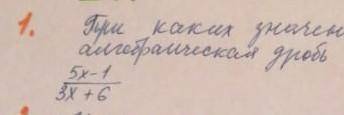 1. При каких значен
алгебраическая дробь
5x-1
3x+6